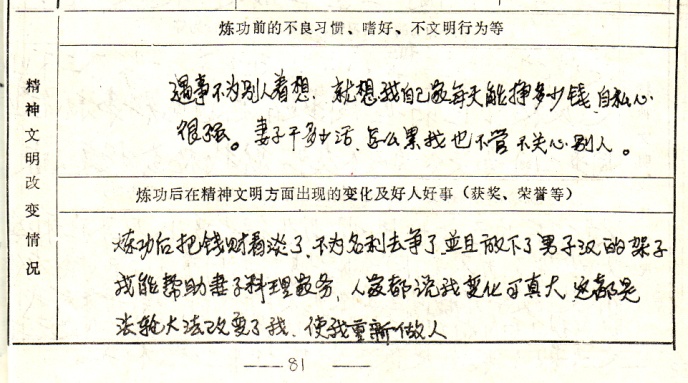 炼功前的不良习惯、嗜好、不文明行为等
精神文明改变情况
遇事不为别人着想。就想我自己家每天能挣多少钱,自私心
很强。妻子干多少活,怎么累我也不管不关心别人。
炼功后在精神文明方面出现的变化及好人好事(获奖、荣誉等)
炼功后把钱财看淡了,不为名利去争了,並且放下了男子汉的架子
我能帮助妻子料理家务,人家都说我变化可真大,这都是
法轮大法改变了我、使我重新做人
81